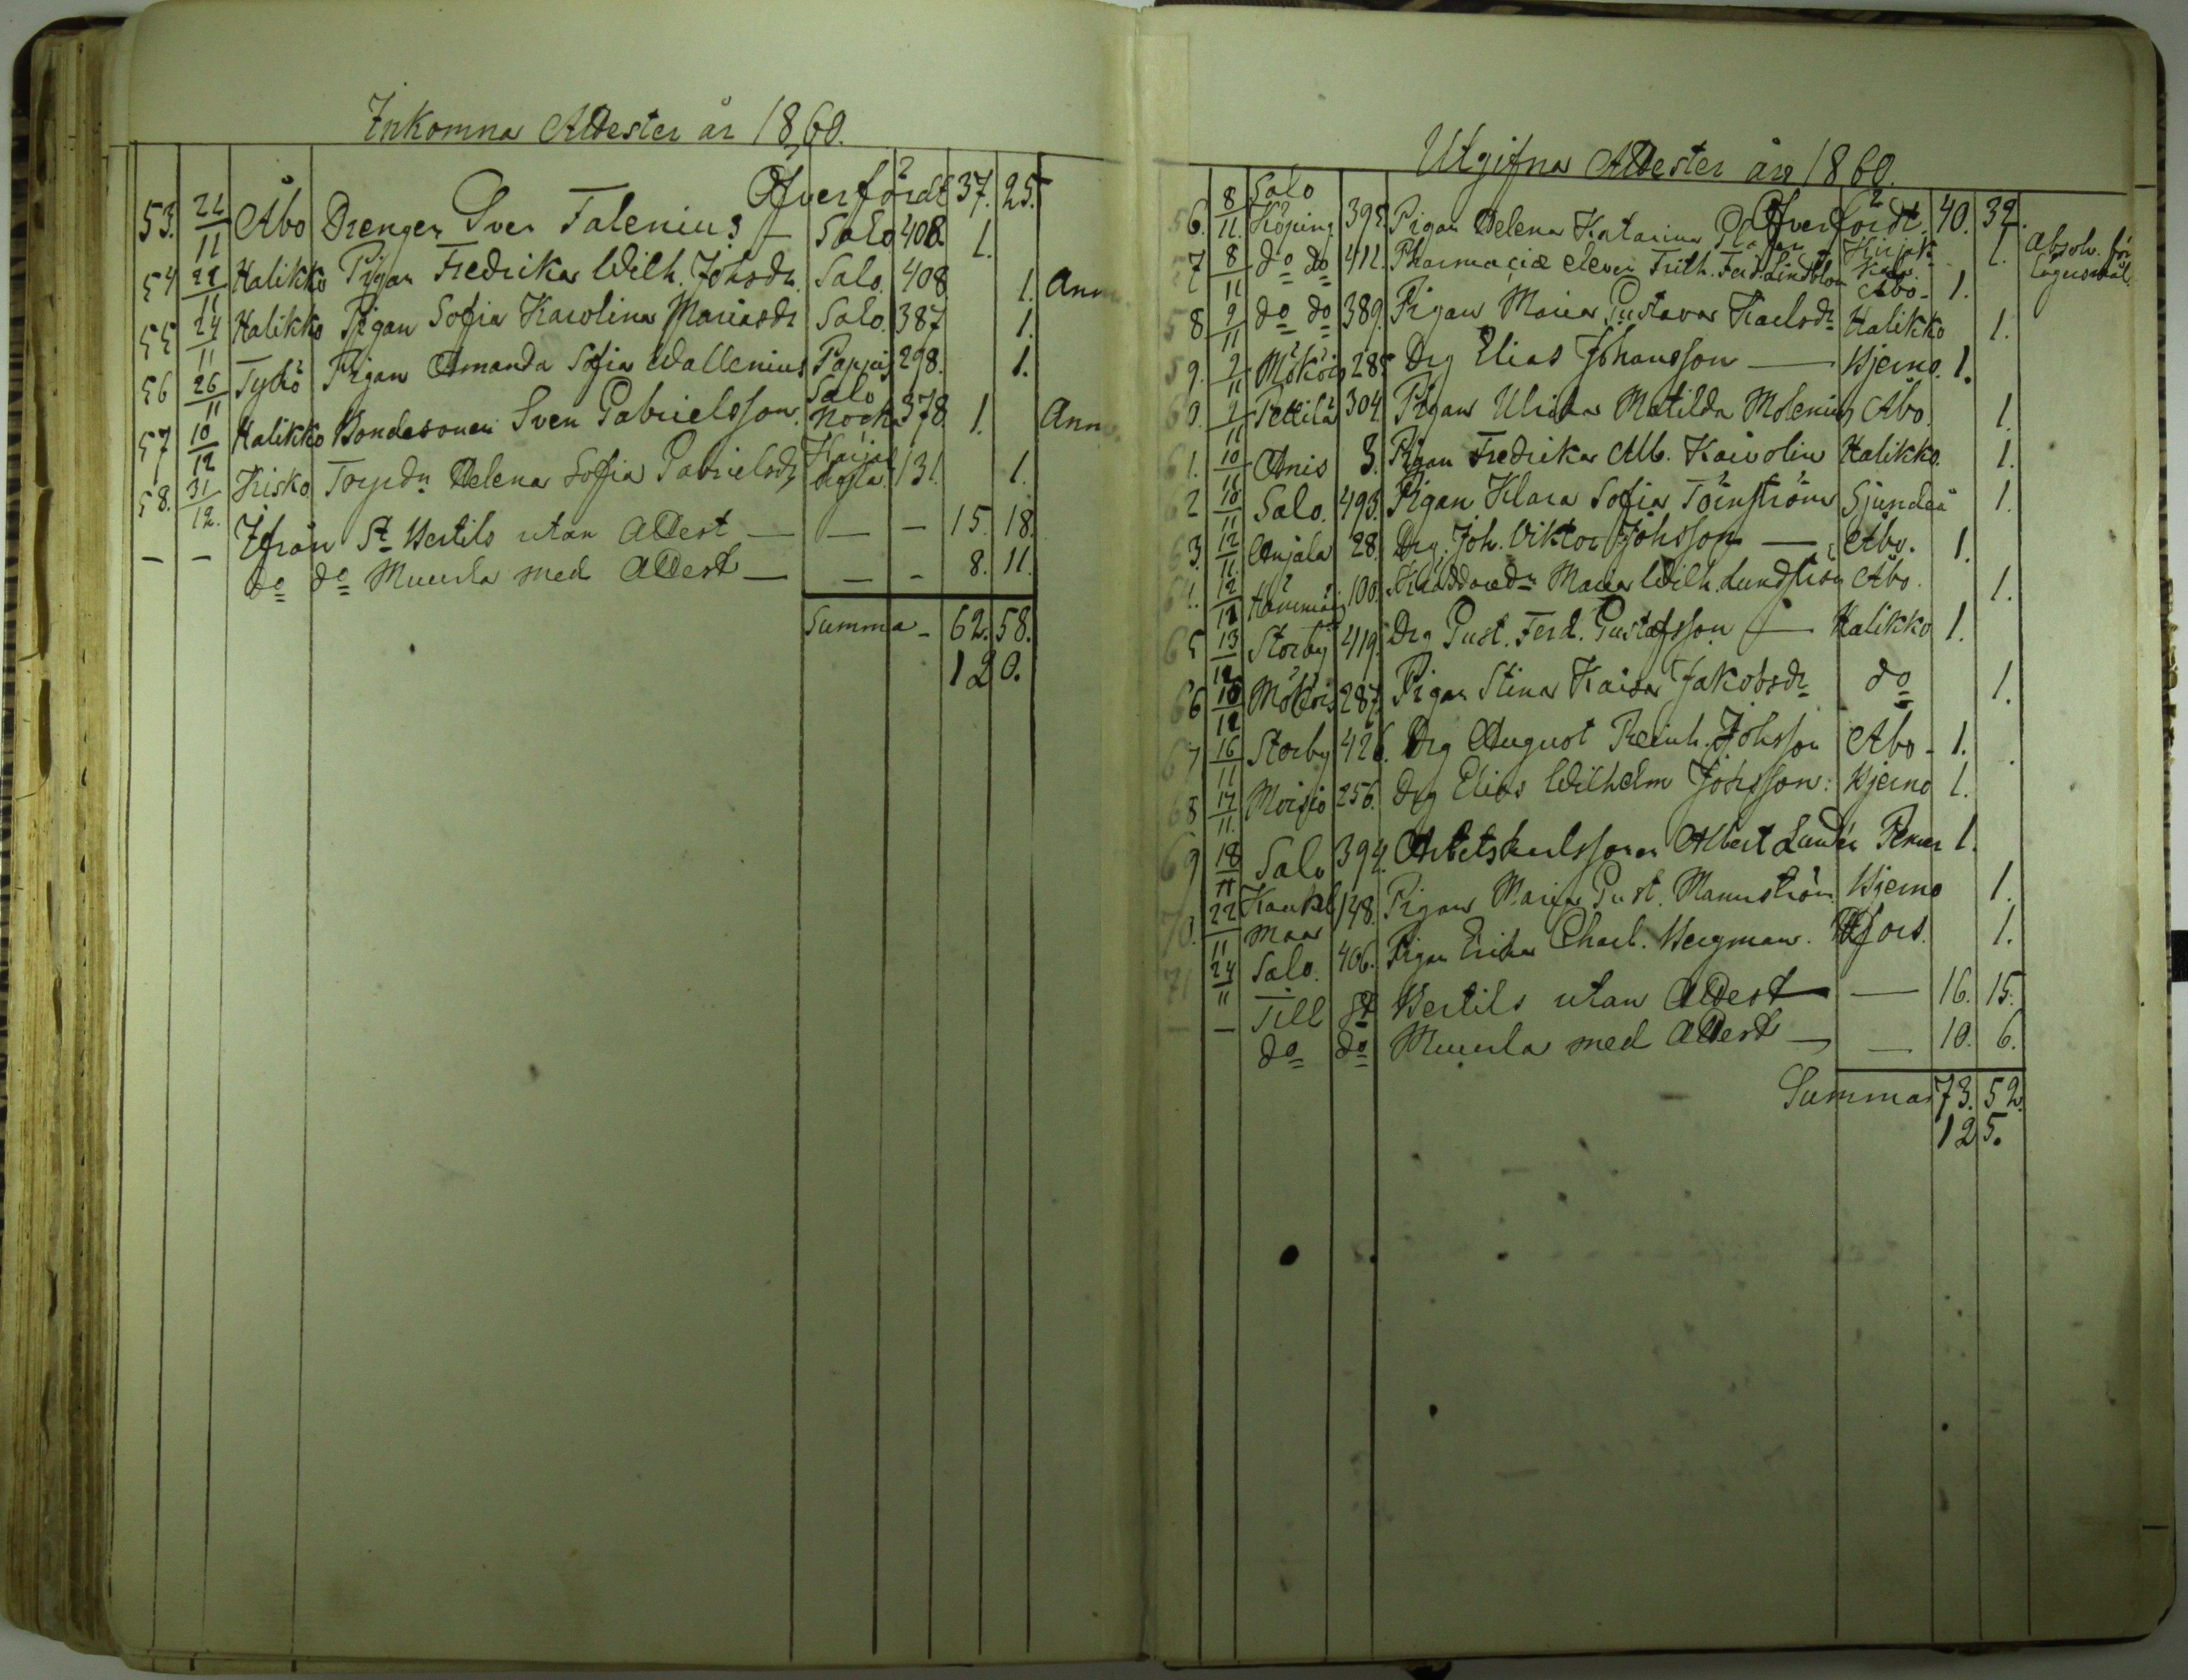 Inkomna Attester år 1860.
Öfverfördt 37. 25.
53. 22/11 Åbo Drengen Sven Talenius — Salo 408. 1.
54 22/11 Halikko Pigan Fredrika Wilh. Johsdr. Salo. 408 1. Ann
55 24/11 Halikko Pigan Sofia Karolina Mariasdr Salo. 387 1.
56 26/11 Tykö Pigan Amanda Sofia Wallenius Pappis 298. 1.
57 10/12 Halikko Bondesonen Sven Gabrielsson. Salo 378 1. Ann
58. 31/12. Kisko Torpdn Helena Sofia Gabrielsdr 131. 1.
— — Ifrån St Bertils utan Attest — — — 15. 18.
do do Muurla med Attest — — - 8. 11.
Summa - 62. 58.
120.
Utgifna Attester år 1860.
Öfverfördt. 40. 32.
56. 8/11. Salo Köping 395. Pigan Helena Katarina 1. Absolv. för lägersmål.
57 8/11 do do 411. Pharmaciæ eleven Frith. Ferd. Lindblom Åbo - 1.
58 9/11 do do 389. Pigan Maria Gustava Karlsdr Halikko 1.
59. 2/11 Mökö 285 Drg Elias Johansson — Bjerno. 1.
60. 2/11 Pettilä 304. Pigan Ulrika Matilda Molenius Åbo. 1.
61. 10/11 Anis 3. Pigan Fredrika Alb. Kaivolin Halikko. 1.
62 10/11 Salo. 493. Pigan Klara Sofia Törnström Sjundeå 1.
63. 12/11. Anjala 28. Drg. Joh. Viktor Johsson — Åbo. 1.
64. 12/12 100. Maria Wilh. Lundström Åbo. 1.
65 13/12 Storby 419. Drg Gust. Ferd. Gustafsson — Halikko 1.
66 10/12 287. Pigan Stina Kaisa Jakobsdr do 1.
67 16/11 Storby 426. Drg August Reinh. Johsson Åbo - 1.
68 17/11. Moisio 256. Drg Elias Wilhelm Johsson: Bjerno 1.
69 18/11 Salo 394. Arbetskarlssonen Albert Lundén Pemar 1.
70. 22/11 Kankal maa 148. Pigan Maria Gust. Mannström Bjerno 1.
71 24/11 Salo. 406. Pigan Erika Charl. Bergman. Hfors. 1.
— — Till St Bertils utan Attest — — 16. 15.
do do Muurla med Attest — — 10. 6.
Summa 73. 52.
125.